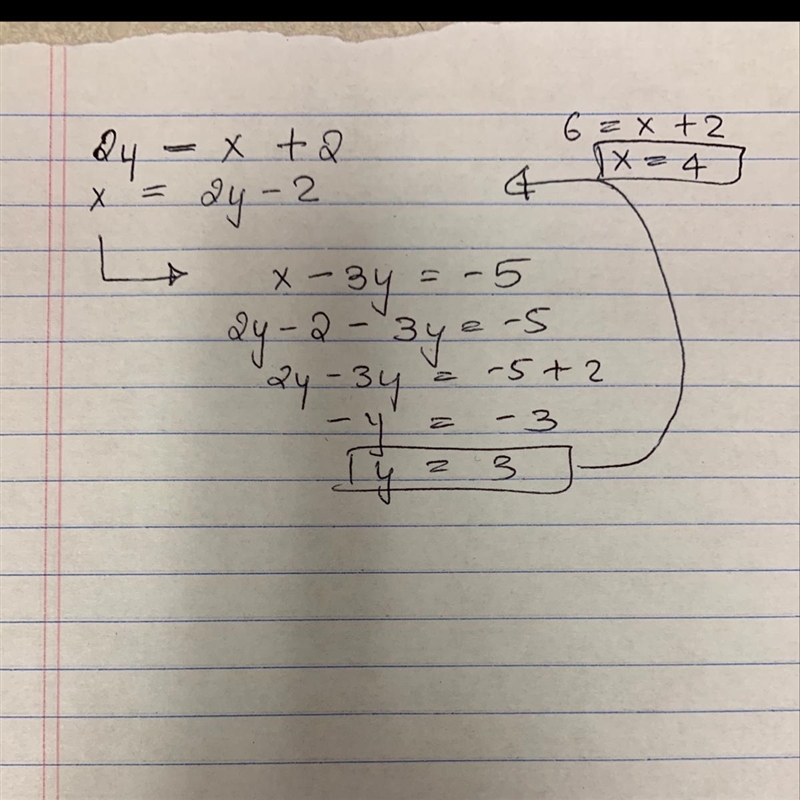 2y = x + 2
x = 2y - 2
x - 3y = -5
2y - 2 - 3y = -5
2y - 3y = -5 + 2
-y = -3
y = 3
6 = x + 2
x = 4